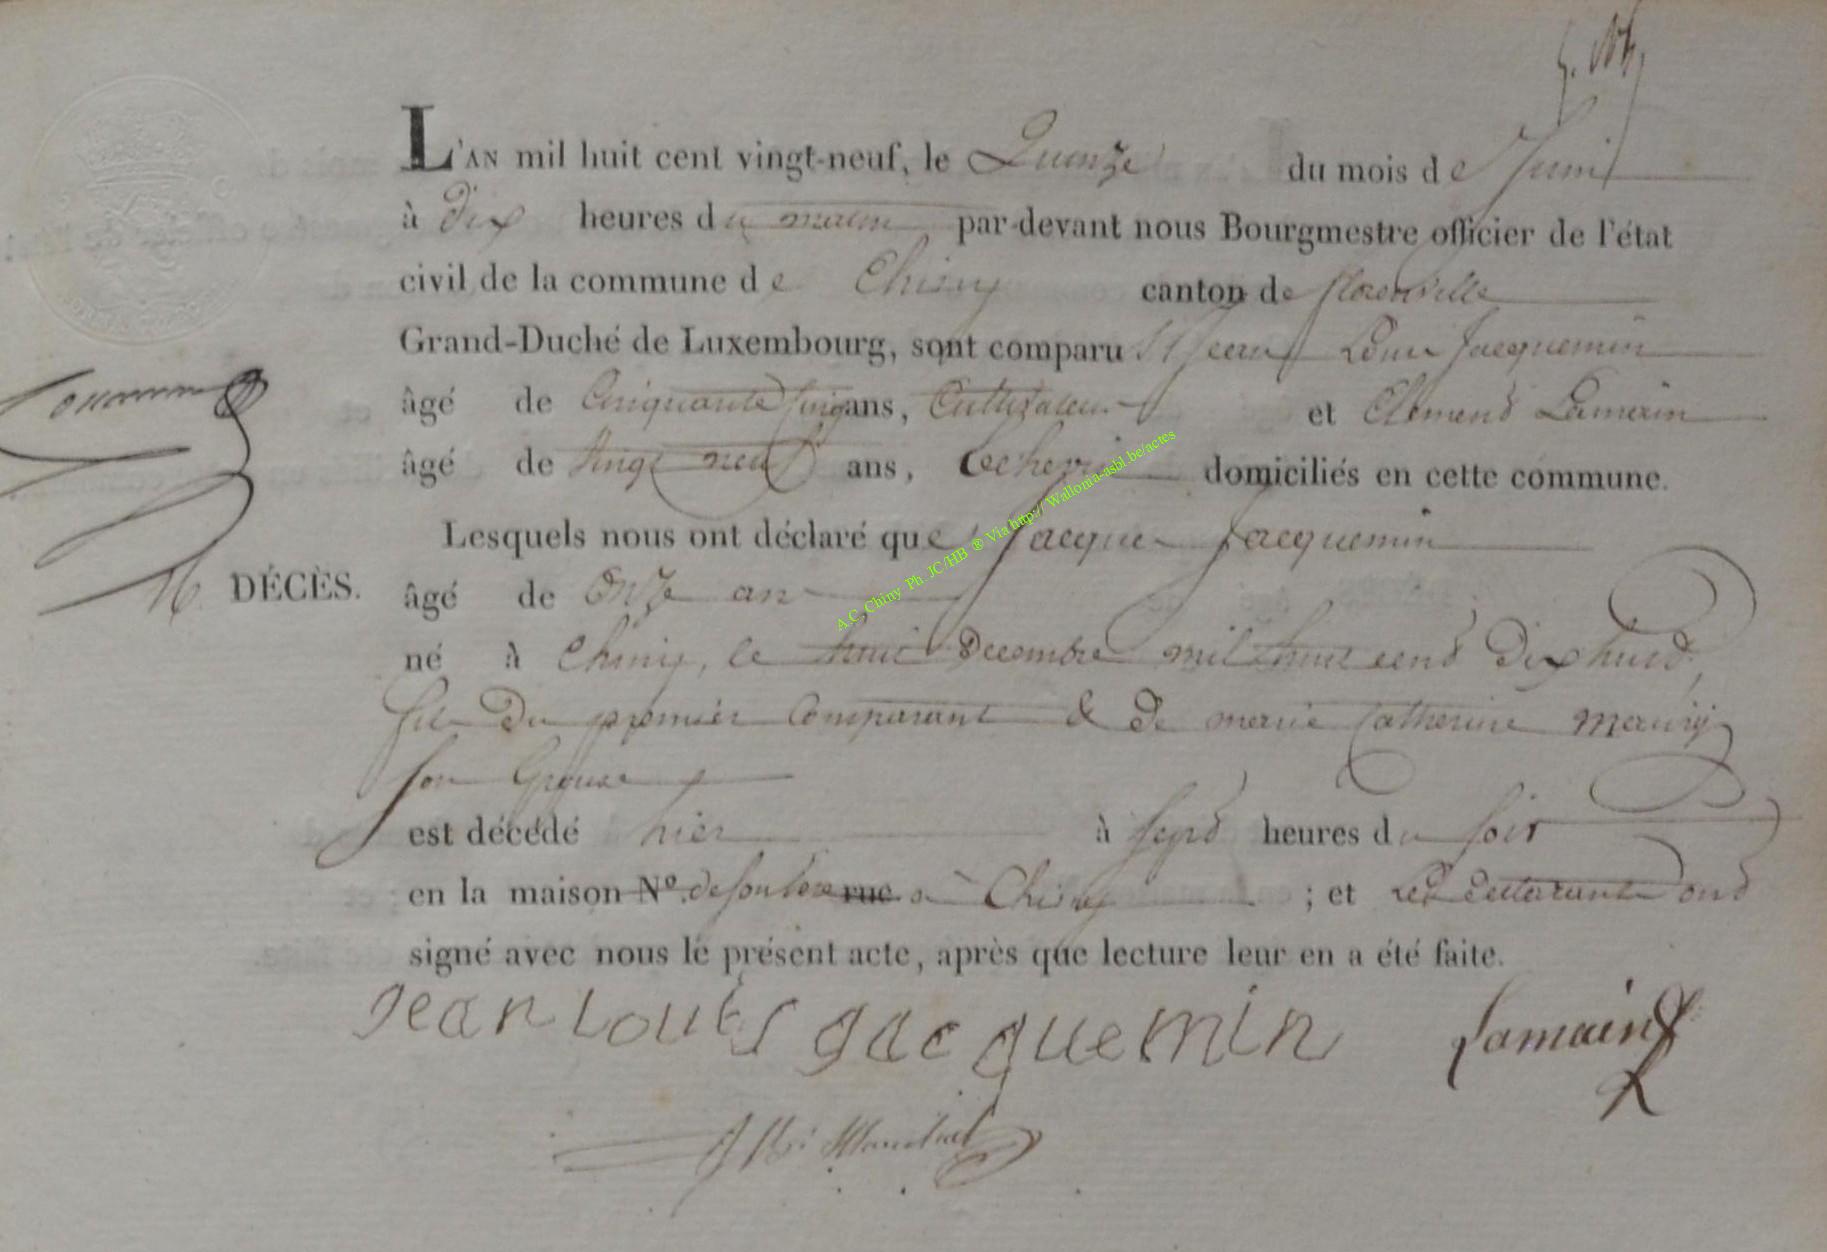 L'AN mil huit cent vingt-neuf, le Quinze du mois de Juin
à dix heures du matin par-devant nous Bourgmestre officier de l'état
civil de la commune de Chiny canton de florenville
Grand-Duché de Luxembourg, sont comparu Jean Louis Jacquemin
âgé de Cinquante cinq ans, Cultivateur et Clemend Lamain
âgé de vingt neuf ans, domiciliés en cette commune.
Lesquels nous ont déclaré que Jacque Jacquemin
DÉCÈS. âgé de onze an
né à Chiny, le huit Decembre mil huit cend Dix huid,
fils Du premier Comparant & de marie Catherine
son Epouse
est décédé hier à sepd heures du soir
en la maison N.º de son pere rue à Chiny ; et Les declarants ond
signé avec nous le présent acte, après que lecture leur en a été faite.
Jean Louis Jacquemin Lamain
A.C. Chiny Ph. JC/HB ® Via http:// Wallonia-asbl.be/actes